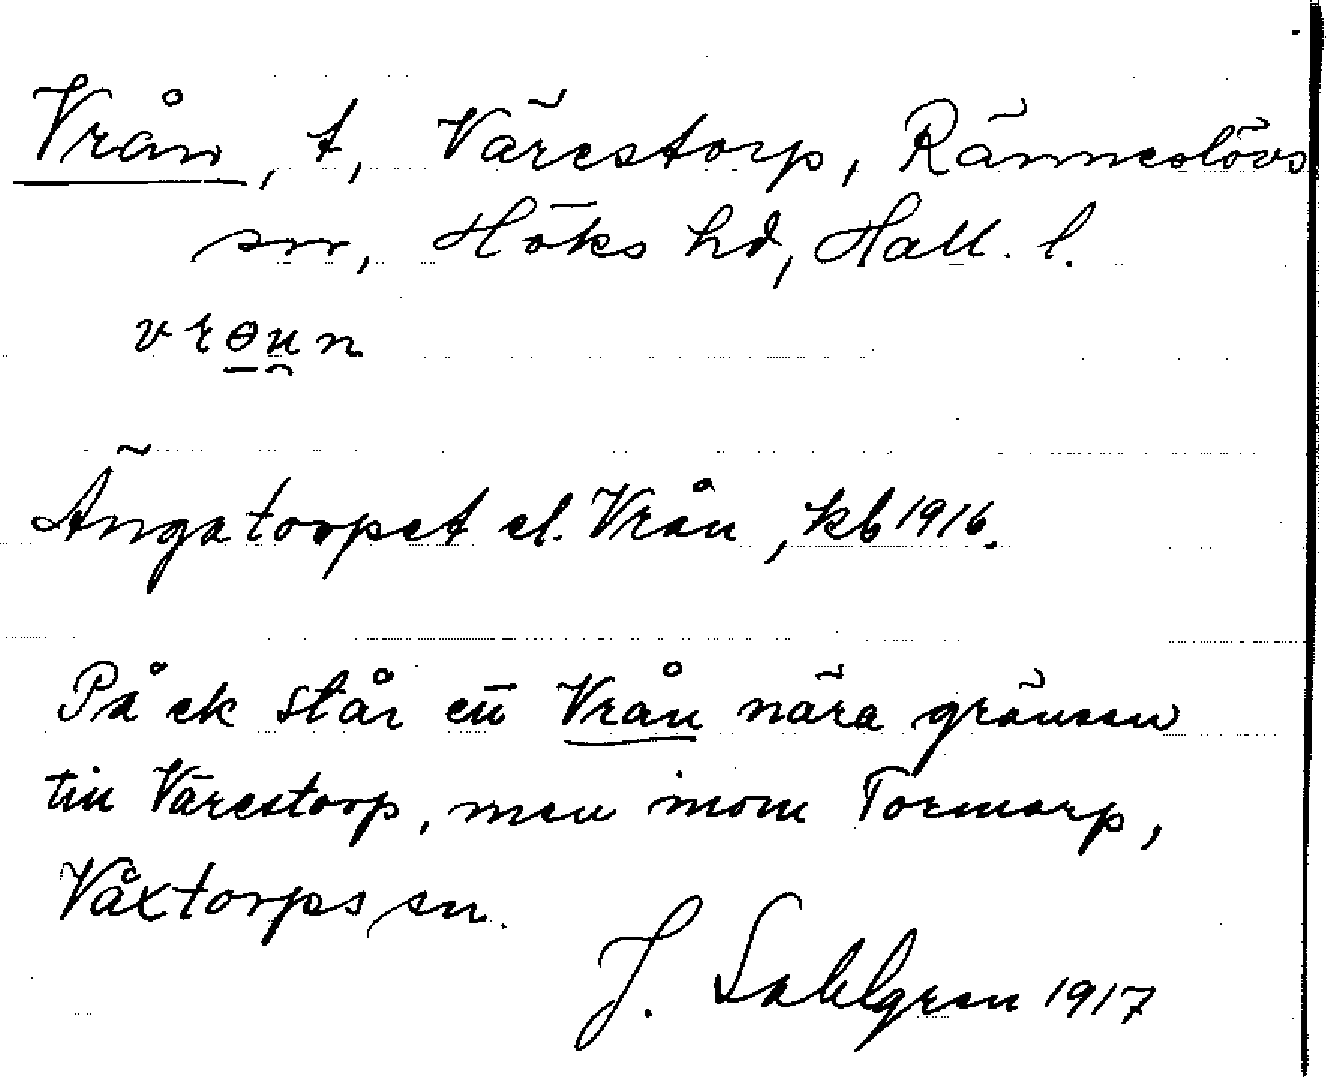 Vrån, t, Värestorp, Ränneslövs
sn, Höks hd, Hall. l.
vrɵu̯n
Ängatorpet el. Vrån, kb 1916.
På ek står en Vrån nära gränsen
till Värestorp, men inom Tormarp,
Våxtorps sn.
J. Sahlgren 1917